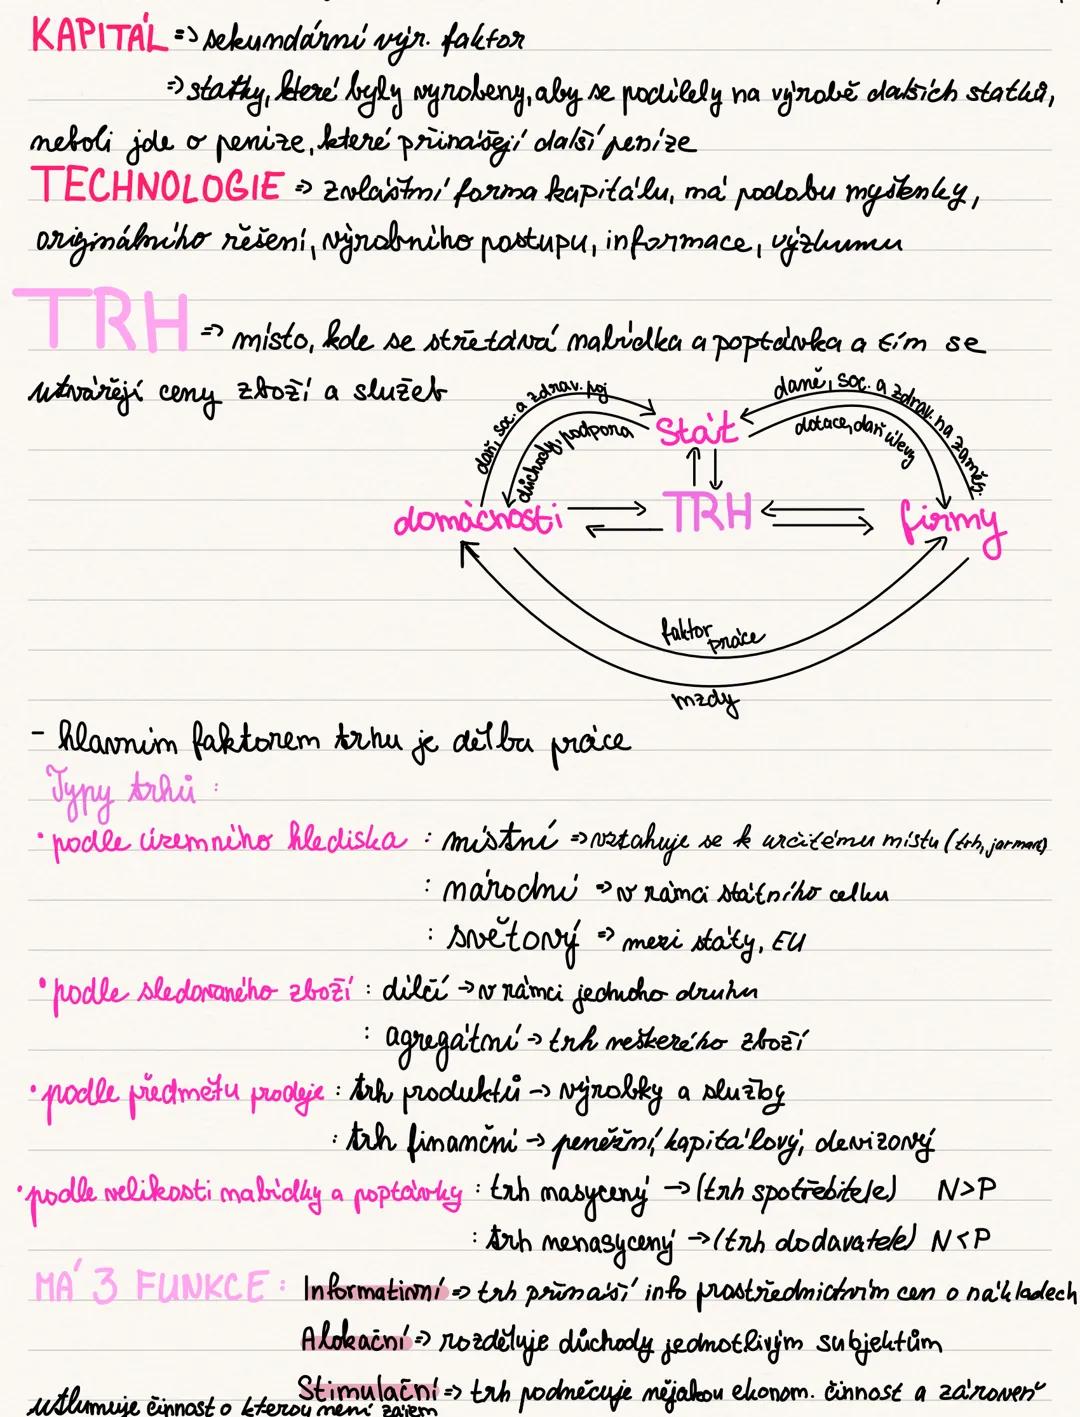 KAPITÁL => sekundární výr. faktor
=> statky, které byly vyrobeny, aby se podílely na výrobě dalších statků,
neboli jde o peníze, které přinášejí další peníze
TECHNOLOGIE => zvláštní forma kapitálu, má podobu myšlenky,
originálního řešení, výrobního postupu, informace, výzkumu
TRH => místo, kde se střetává nabídka a poptávka a tím se
utvářejí ceny zboží a služeb
daň, soc. a zdrav. poj
daně, soc. a zdrav. na zaměs.
důchody, podpora
Stát
dotace, daň úlevy
domácnosti
TRH
firmy
faktor práce
mzdy
- hlavním faktorem trhu je dělba práce
Typy trhů :
• podle územního hlediska : místní => vztahuje se k určitému místu (trh, jarmark)
: národní => v rámci státního celku
: světový => mezi státy, EU
• podle sledovaného zboží : dílčí -> v rámci jednoho druhu
: agregátní -> trh veškerého zboží
• podle předmětu prodeje : trh produktů -> výrobky a služby
: trh finanční -> peněžní, kapitálový, devizový
• podle velikosti nabídky a poptávky : trh nasycený -> (trh spotřebitele) N>P
: trh nenasycený -> (trh dodavatele) N<P
MÁ 3 FUNKCE : Informativní => trh přináší info prostřednictvím cen o nákladech
Alokační => rozděluje důchody jednotlivým subjektům
Stimulační => trh podněcuje nějakou ekonom. činnost a zároveň
utlumuje činnost o kterou není zájem